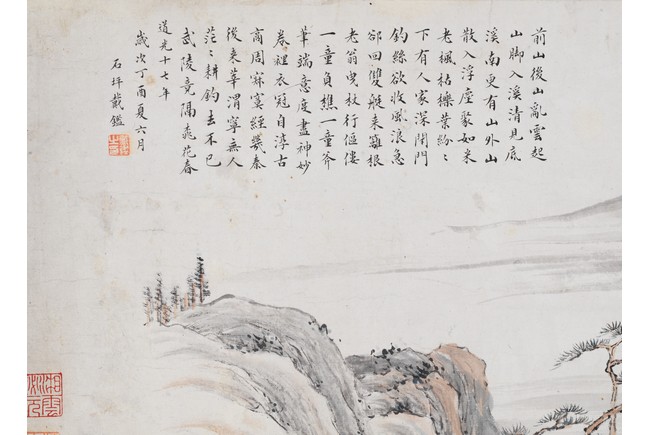 前山後山亂雲起
山脚入溪清見底
溪南更有山外山
散入浮塵聚如米
老楓枯櫟葉紛〻
下有人家深閉門
釣絲欲收風浪急
卻回雙艇来籬根
老翁曳杖行傴僂
一童負樵一童斧
筆端意度盡神妙
卷裡衣冠自淳古
商周寂寞經幾秦
後来莘渭寧無人
茫〻耕釣去不已
武陵竟隔桃花春
道光十七年
歲次丁酉夏六月
石坪戴鑑
湘雲